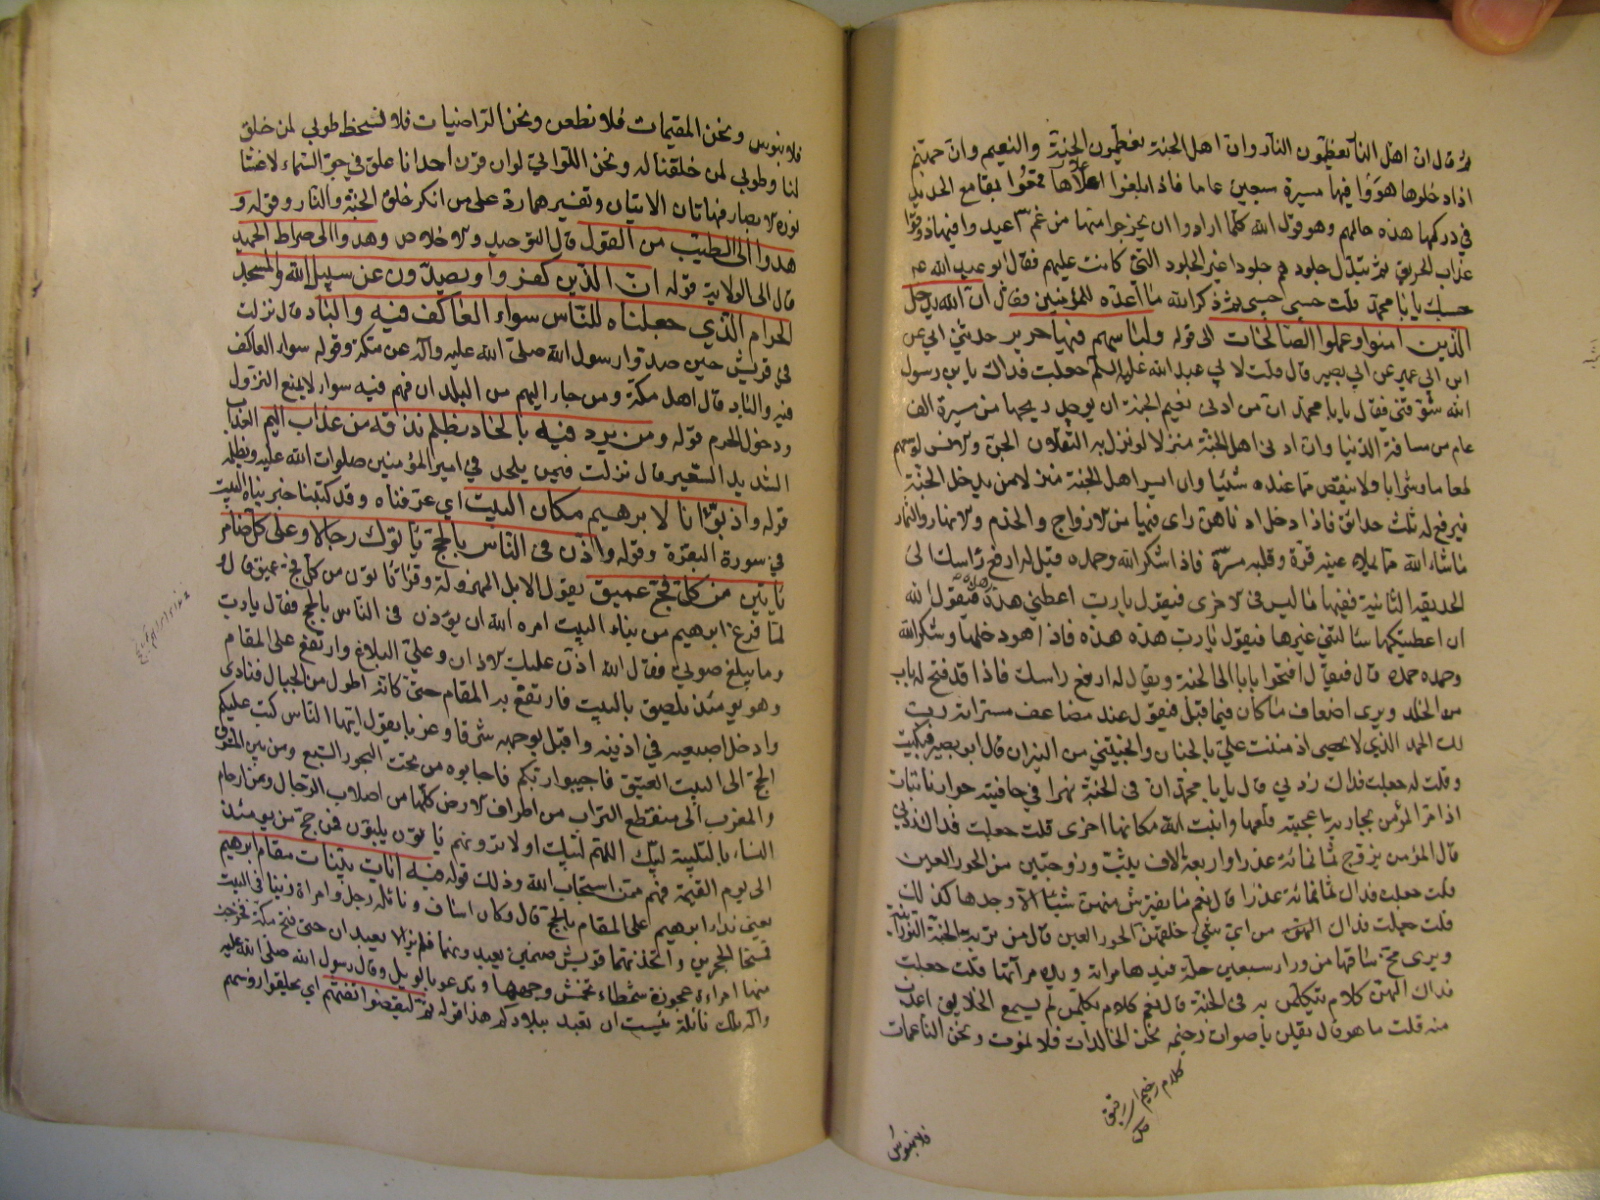 ثم قال ان اهل النار يعظمون النار وان اهل الجنة يعظمون الجنة والنعيم وان جهنم
اذا دخلوها هووا فيها مسيرة سبعين عاما فاذا بلغوا اعلاها قمعوا بمقامع الحديد
في دركها هذه حالهم وهو قول الله كلما ارادوا ان يخرجوا منها من غم اعيدوا فيها وذوقوا
عذاب الحريق ثم تبدل جلودهم جلودا غير الجلود التي كانت عليهم فقال ابو عبد الله ع
حسبك يا با محمد قلت حسبي حسبي ثم ذكر الله ما اعده للمؤمنين وقال ان الله يدخل
الذين امنوا وعملوا الصالحات الى قوله ولباسهم فيها حرير حدثني ابي عن
ابن ابي عمير عن ابي بصير قال قلت لابي عبد الله عليه السلم جعلت فداك يا بن رسول
الله شوقني فقال يا با محمد ان من ادنى نعيم الجنة ان يوجد ريحها من مسيرة الف
عام من مسافة الدنيا وان ادنى اهل الجنة منزلا لو نزل به الثقلان الجن والانس لوسعهم
طعاما وشرابا ولا ينقص مما عنده شيئا وان ايسر اهل الجنة منزلا من يدخل الجنة
فيرفع له ثلث حدائق فاذا دخل ادناهن راى فيها من الازواج والخدم والانهار والثمار
ما شاء الله مما يملاء عينه قرة وقلبه مسرة فاذا شكر الله وحمده قيل له ارفع راسك الى
الحديقة الثانية ففيها ما ليس في الاخرى فيقول يا رب اعطني هذه فيقول الله
ان اعطيتكها سالتني غيرها فيقول يا رب هذه هذه فاذا هو دخلها وشكر الله
وحمده قال فيقال افتحوا بابا الى الجنة ويقال له ارفع راسك فاذا قد فتح له باب
من الخلد ويرى اضعاف ما كان فيما قبل فيقول عند مضاعف مسراته رب
لك الحمد الذي لا يحصى اذ مننت علي بالجنان وانجيتني من النيران قال ابو بصير فبكيت
وقلت له جعلت فداك زدني قال يا با محمد ان في الجنة نهرا في حافيته جوار نابتات
اذا مر المؤمن بجارية اعجبته قلعها وانبت الله مكانها اخرى قلت جعلت فداك زدني
قال المؤمن يزوج ثمانمائة عذرا واربعة الاف ثيب وزوجتين من الحور العين
قلت جعلت فداك ثمانمائة عذرا قال نعم ما يفترش منهن شيئا الا وجدها كذلك
قلت جعلت فداك من اي شي خلقن الحور العين قال من تربة الجنة النورانية
ويرى مخ ساقها من وراء سبعين حلة كبدها مراته وكبده مرآتها قلت جعلت
فداك الهن كلام يتكلمن به في الجنة قال نعم كلام يتكلمن لم يسمع الخلايق اعذب
منه قلت ما هو قال يقلن باصوات رخيمة نحن الخالدات فلا نموت ونحن الناعمات
كلام رخيم اى رقيق
فلا نبؤس
فلا نبوس ونحن المقيمات فلا نظعن ونحن الراضيات فلا نسخط طوبى لمن خلق
لنا وطوبى لمن خلقنا له ونحن اللواتي لو ان قرن احدانا علق في جو السماء لاغشا
نوره الابصار فهاتان الايتان وتفسيرهما رد على من انكر خلق الجنة والنار وقوله و
هدوا الى الطيب من القول قال التوحيد والاخلاص وهدوا الى صراط الحميد
قال الى الولاية قوله ان الذين كفروا ويصدون عن سبيل الله والمسجد
الحرام الذي جعلناه للناس سواء العاكف فيه والباد قال نزلت
في قريش حين صدوا رسول الله صلى الله عليه وآله عن مكة وقوله سواء العاكف
فيه والباد قال اهل مكة ومن جاء اليهم من البلدان فهم فيه سواء لا يمنع النزول
ودخول الحرم قوله ومن يرد فيه بالحاد بظلم نذقه من عذاب اليم العذاب
الشديد السعير قال نزلت فيمن يلحد في امير المؤمنين صلوات الله عليه ويظلمه
قوله واذ بوانا لابرهيم مكان البيت اي عرفناه وقد كتبنا خبر بناه البيت
في سورة البقرة وقوله واذن في الناس بالحج ياتوك رجالا وعلى كل ضامر
ياتين من كل فج عميق يقول الابل المهزولة وقرا ياتون من كل فج عميق قال و
لما فرغ ابرهيم من بناء البيت امره الله ان يؤذن في الناس بالحج فقال يا رب
وما يبلغ صوتي فقال الله اذن عليك الاذان وعلي البلاغ وارتفع على المقام
وهو يومئذ يلصق بالبيت فارتفع به المقام حتى كانه اطول من الجبال فنادى
وادخل اصبعيه في اذنيه واقبل بوجهه شرقا وغربا يقول ايها الناس كتب عليكم
الحج الى البيت العتيق فاجيبوا ربكم فاجابوه من تحت البحور السبع ومن بين المشرق
والمغرب الى منقطع التراب من اطراف الارض كلها من اصلاب الرجال ومن ارحام
النساء بالتلبية لبيك اللهم لبيك اولا ترونهم ياتون يلبون فمن حج من يومئذ
الى يوم القيمة فهم ممن استجاب الله وذلك قوله فيه ايات بينات مقام ابرهيم
يعني نداء ابرهيم على المقام بالحج قال وكان اساف ونائلة رجل وامراة زنيا في البيت
فمسخا حجرين واتخذتهما قريش صنمين يعبدونهما فلم يزالا يعبدان حتى فتح مكة فخرجت
منها امراءة عجوزة شمطاء تخمش وجهها وتدعو بالويل وقال رسول الله صلى الله عليه
وآله تلك نائلة يئست ان تعبد ببلادكم هذا قوله ثم ليقضوا تفثهم اي يحلقوا رؤسهم